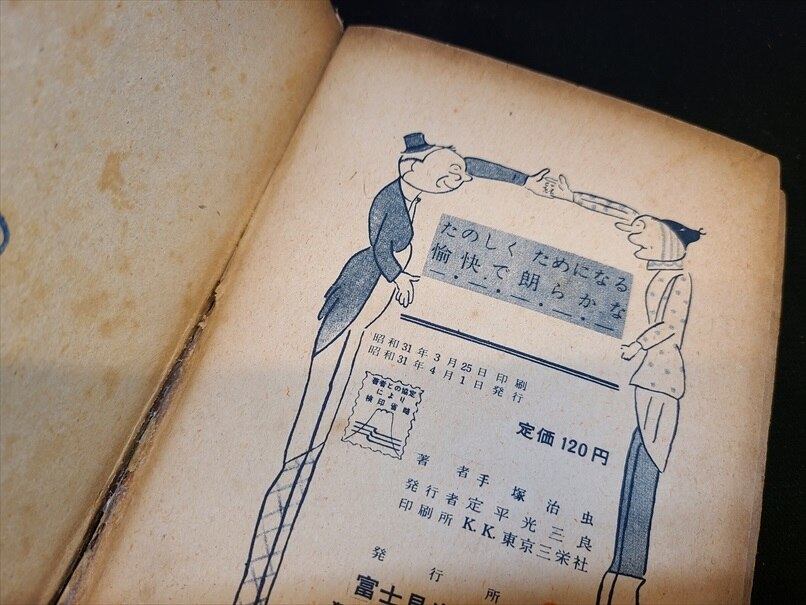 たのしく ためになる
愉快で朗らかな
昭和31年3月25日 印刷
昭和31年4月1日 発行
著者との協定
により
検印省略
定価 120円
著者 手塚治虫
発行者 定平光三良
印刷所 K.K.東京三栄社
発行所
富士見